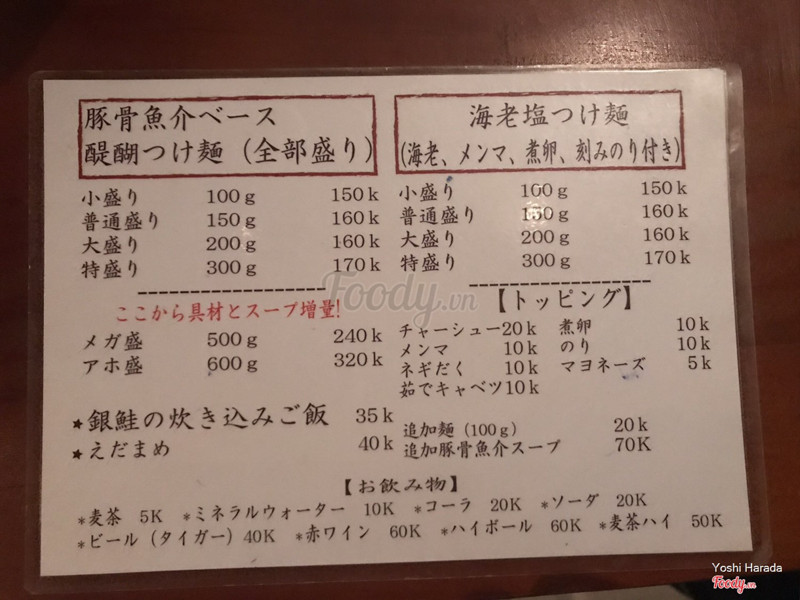 豚骨魚介ベース
醍醐つけ麺（全部盛り）
小盛り 100g 150k
普通盛り 150g 160k
大盛り 200g 160k
特盛り 300g 170k
ここから具材とスープ増量!
メガ盛 500g 240k
アホ盛 600g 320k
★銀鮭の炊き込みご飯 35k
★えだまめ 40k
海老塩つけ麺
(海老、メンマ、煮卵、刻みのり付き)
小盛り 100g 150k
普通盛り 150g 160k
大盛り 200g 160k
特盛り 300g 170k
【トッピング】
チャーシュー20k 煮卵 10k
メンマ 10k のり 10k
ネギだく 10k マヨネーズ 5k
茹でキャベツ10k
追加麺（100g） 20k
追加豚骨魚介スープ 70K
【お飲み物】
*麦茶 5K *ミネラルウォーター 10K *コーラ 20K *ソーダ 20K
*ビール（タイガー）40K *赤ワイン 60K *ハイボール 60K *麦茶ハイ 50K
Foody.vn
Yoshi Harada
Foody.vn